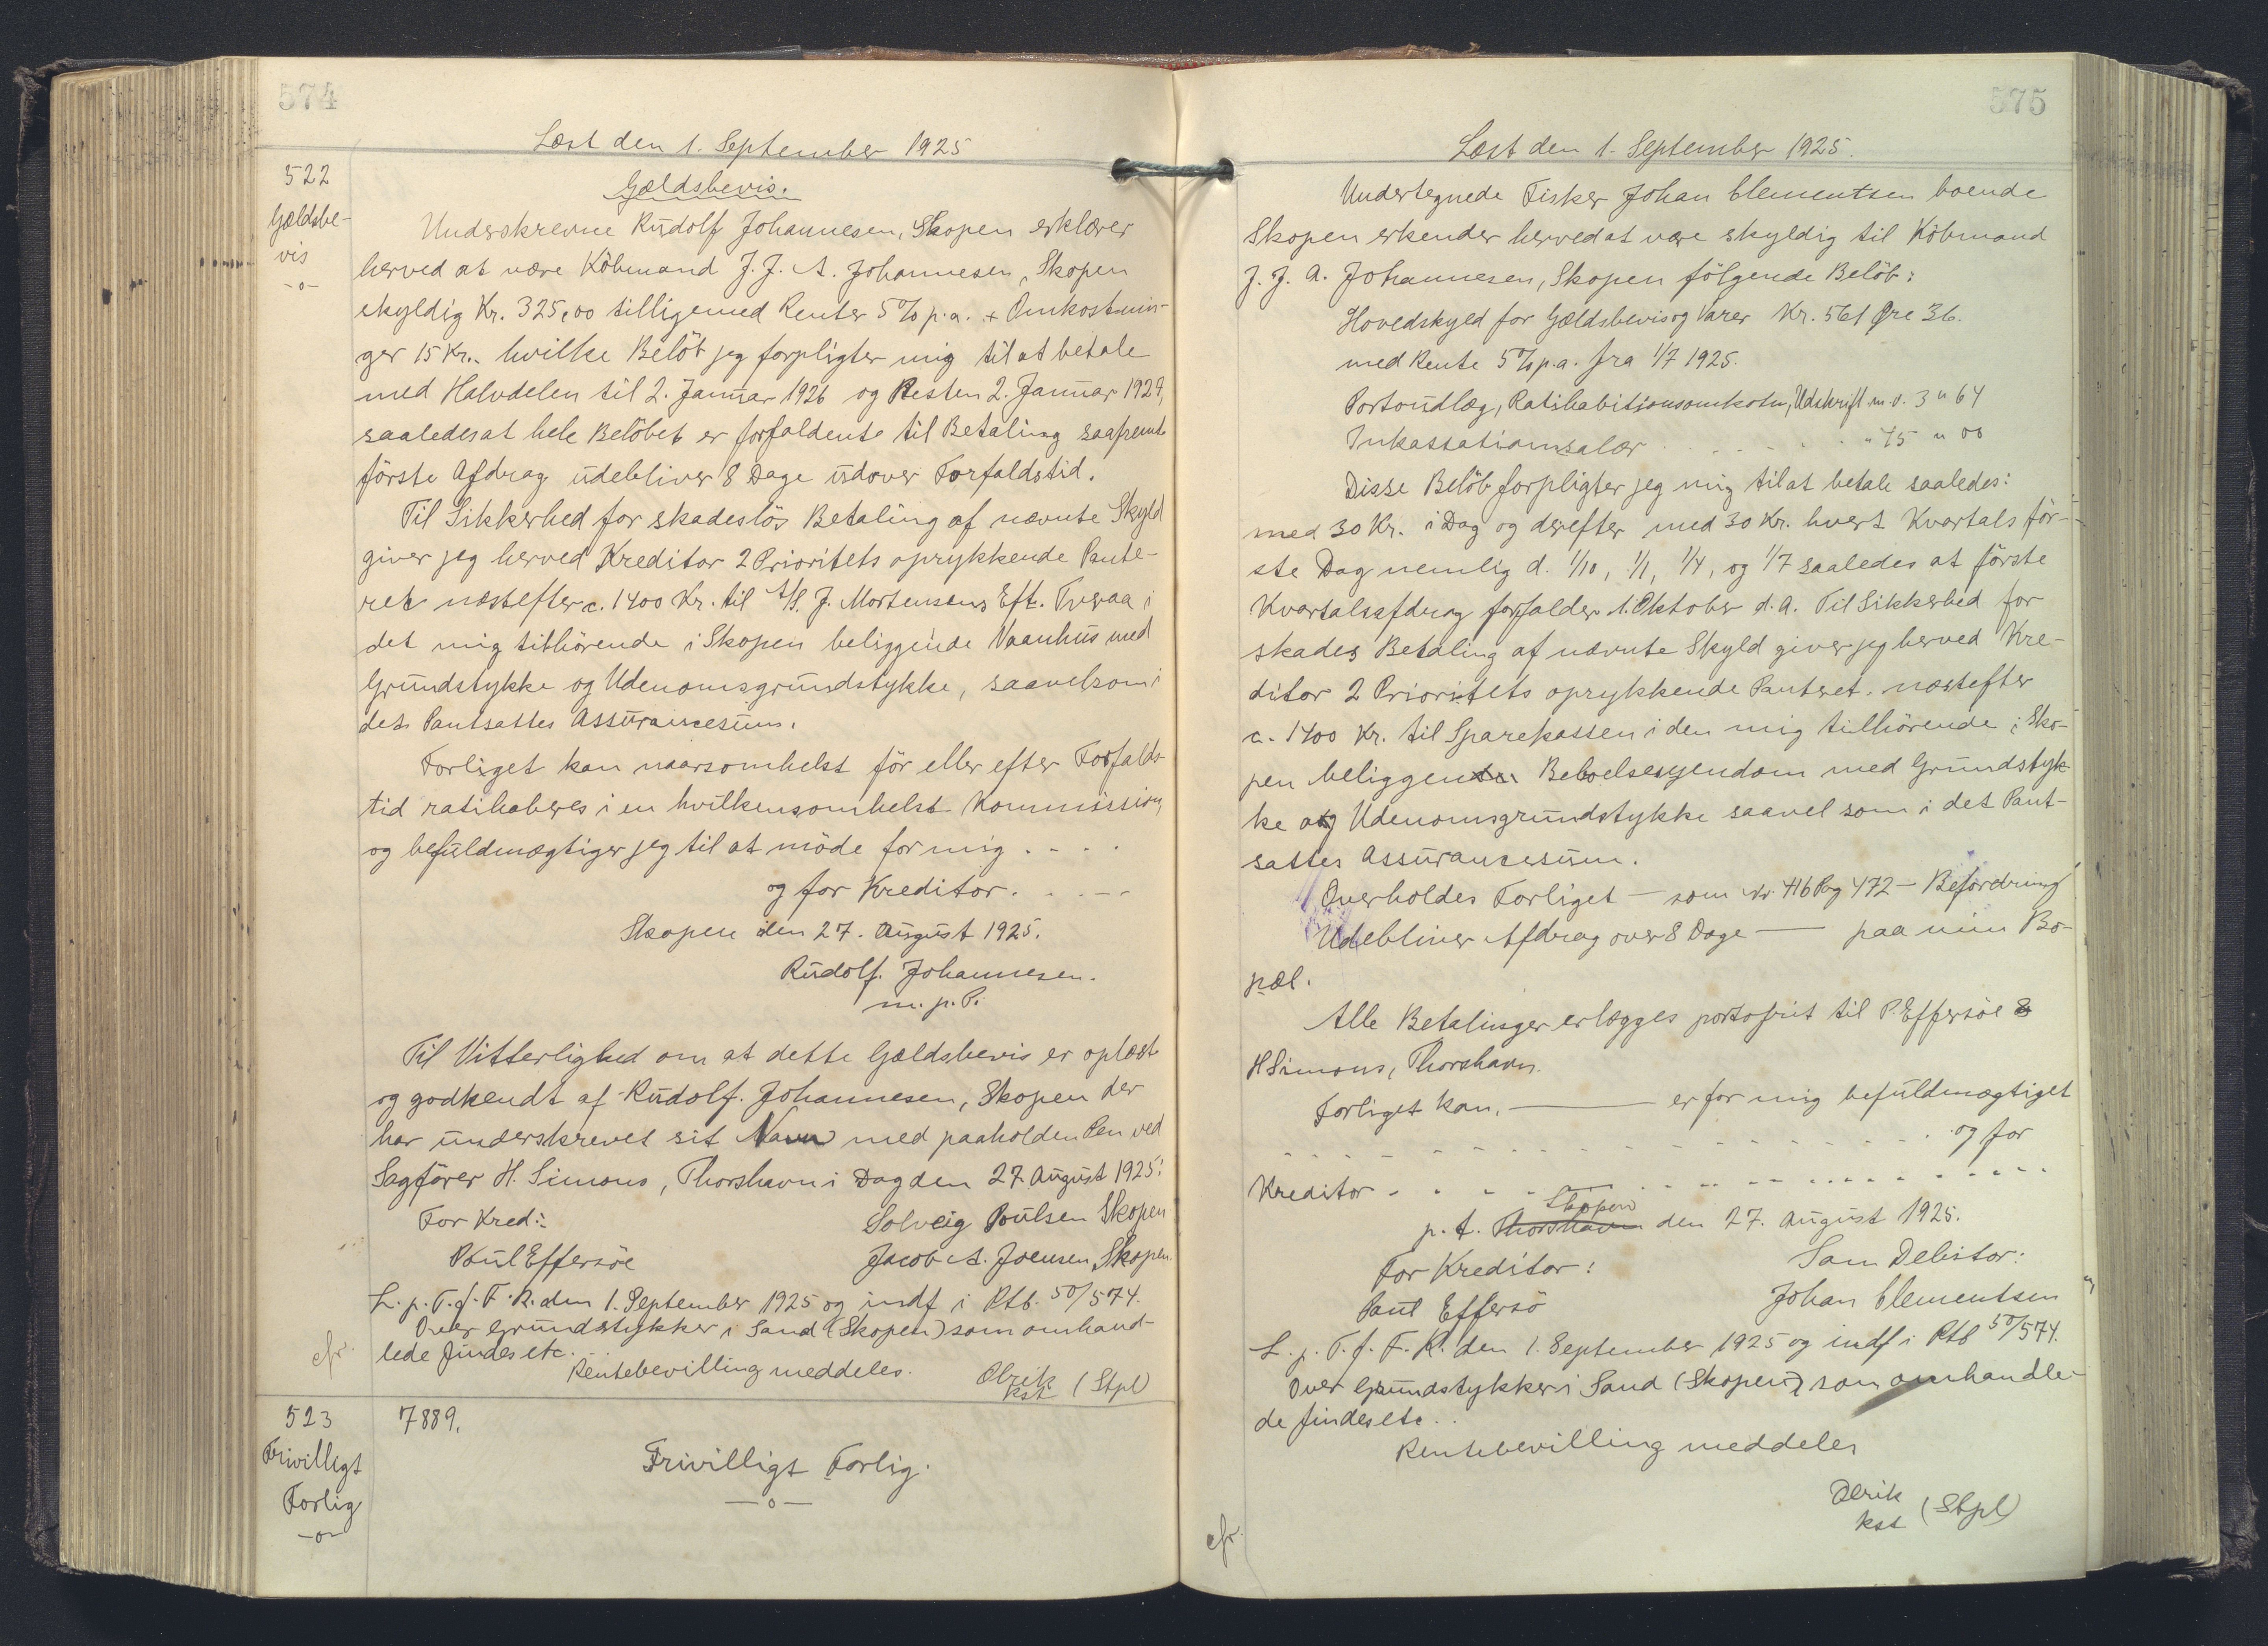 574
Læst den 1. September 1925
522
Gældsbe-
vis
-o-
Gældsbevis.
Underskrevne Rudolf Johannesen, Skopen erklærer
herved at være Köbmand J. J. A. Johannesen, Skopen
skyldig Kr. 325,00 tilligemed Renter 5% p.a. + Omkostnin-
ger 15 Kr. hvilke Belöb jeg forpligter mig til at betale
med Halvdelen til 2. Januar 1926 og Resten 2. Januar 1927,
saaledes at hele Belöbet er forfaldent til Betaling saafremt
förste Afdrag udebliver 8 Dage udover Forfaldstid.
Til Sikkerhed for skadeslös Betaling af nævnte Skyld
giver jeg herved Kreditor 2 Prioritets oprykkende Pante-
ret næstefter c. 1400 Kr. til A/S. J. Mortensens Eft. Tveraa i
det mig tilhörende i Skopen beliggende Vaanhus med
Grundstykke og Udenomsgrundstykke, saavelsom i
det Pantsattes Assurancesum.
Forliget kan naarsomhelst för eller efter Forfalds-
tid ratihaberes i en hvilkensomhelst Kommission,
og befuldmægtiger jeg til at möde for mig . - - .
og for Kreditor. . - - -
Skopen den 27. August 1925.
Rudolf. Johannesen.
m. p. P.
Til Vitterlighed om at dette Gældsbevis er oplæst
og godkendt af Rudolf. Johannesen, Skopen der
har underskrevet sit Navn med paaholden Pen ved
Sagförer H. Simons, Thorshavn i Dag den 27 August 1925:
For Kred:
Solveig Poulsen Skopen
Poul Effersöe
Jacob A. Joensen, Skopen
L. p. T. f. F. R. den 1. September 1925 og indf i Ptb. 50/574.
Over Grundstykker i Sand (Skopen) som omhand-
lede findes etc.
cfr.
Rentebevilling meddeles.
Olrik
kst (Stpl)
523
Frivilligt
Forlig
-o-
7889.
Frivilligt Forlig.
-o-
575
Læst den 1. September 1925.
Undertegnede Fisker Johan Clementsen boende
Skopen erkender herved at være skyldig til Köbmand
J. J. A. Johannesen, Skopen fölgende Belöb:
Hovedskyld for Gældsbevis og Varer Kr. 561 Øre 36.
med Rente 5% p.a. fra 1/7 1925.
Portoudlæg, Ratihabitionsomkostn, Udskrift m.v. 3 " 64
Inkassationssalær . . - - . . " 45 " 00
Disse Belöb forpligter jeg mig til at betale saaledes:
med 30 Kr. i Dag og derefter med 30 Kr. hvert Kvartals för-
ste Dag nemlig d. 1/10, 1/1, 1/4, og 1/7 saaledes at förste
Kvartalsafdrag forfalder 1. Oktober d. A. Til Sikkerhed for
skades Betaling af nævnte Skyld giver jeg herved Kre-
ditor 2 Prioritets oprykkende Panteret. næstefter
c. 1400 Kr. til Sparekassen i den mig tilhörende i Sko-
pen beliggende Beboelsesejendom med Grundstyk-
ke og Udenomsgrundstykke saavel som i det Pant-
sattes Assurancesum.
Overholdes Forliget — som Nr 416 Pag 472 — Befordring
Udebliver Afdrag over 8 Dage — paa min Bo-
pæl.
Alle Betalinger erlægges portofrit til P. Effersöe &
H Simons, Thorshavn.
Forliget kan, — er for mig befuldmægtiget
- - - - - - - - - - - - - - og for
Kreditor - - - - - - - - - - - -
Skopen
p. t. Thorshavn den 27. August 1925.
For Kreditor:
Som Debitor:
Poul Effersö
Johan Clementsen
L. p. T. f. F. R. den 1. September 1925 og indf i Ptb 50/574.
Over Grundstykker i Sand (Skopen) som omhandle-
de findes etc..
Rentebevilling meddeles
Olrik
kst (Stpl)
cfr.